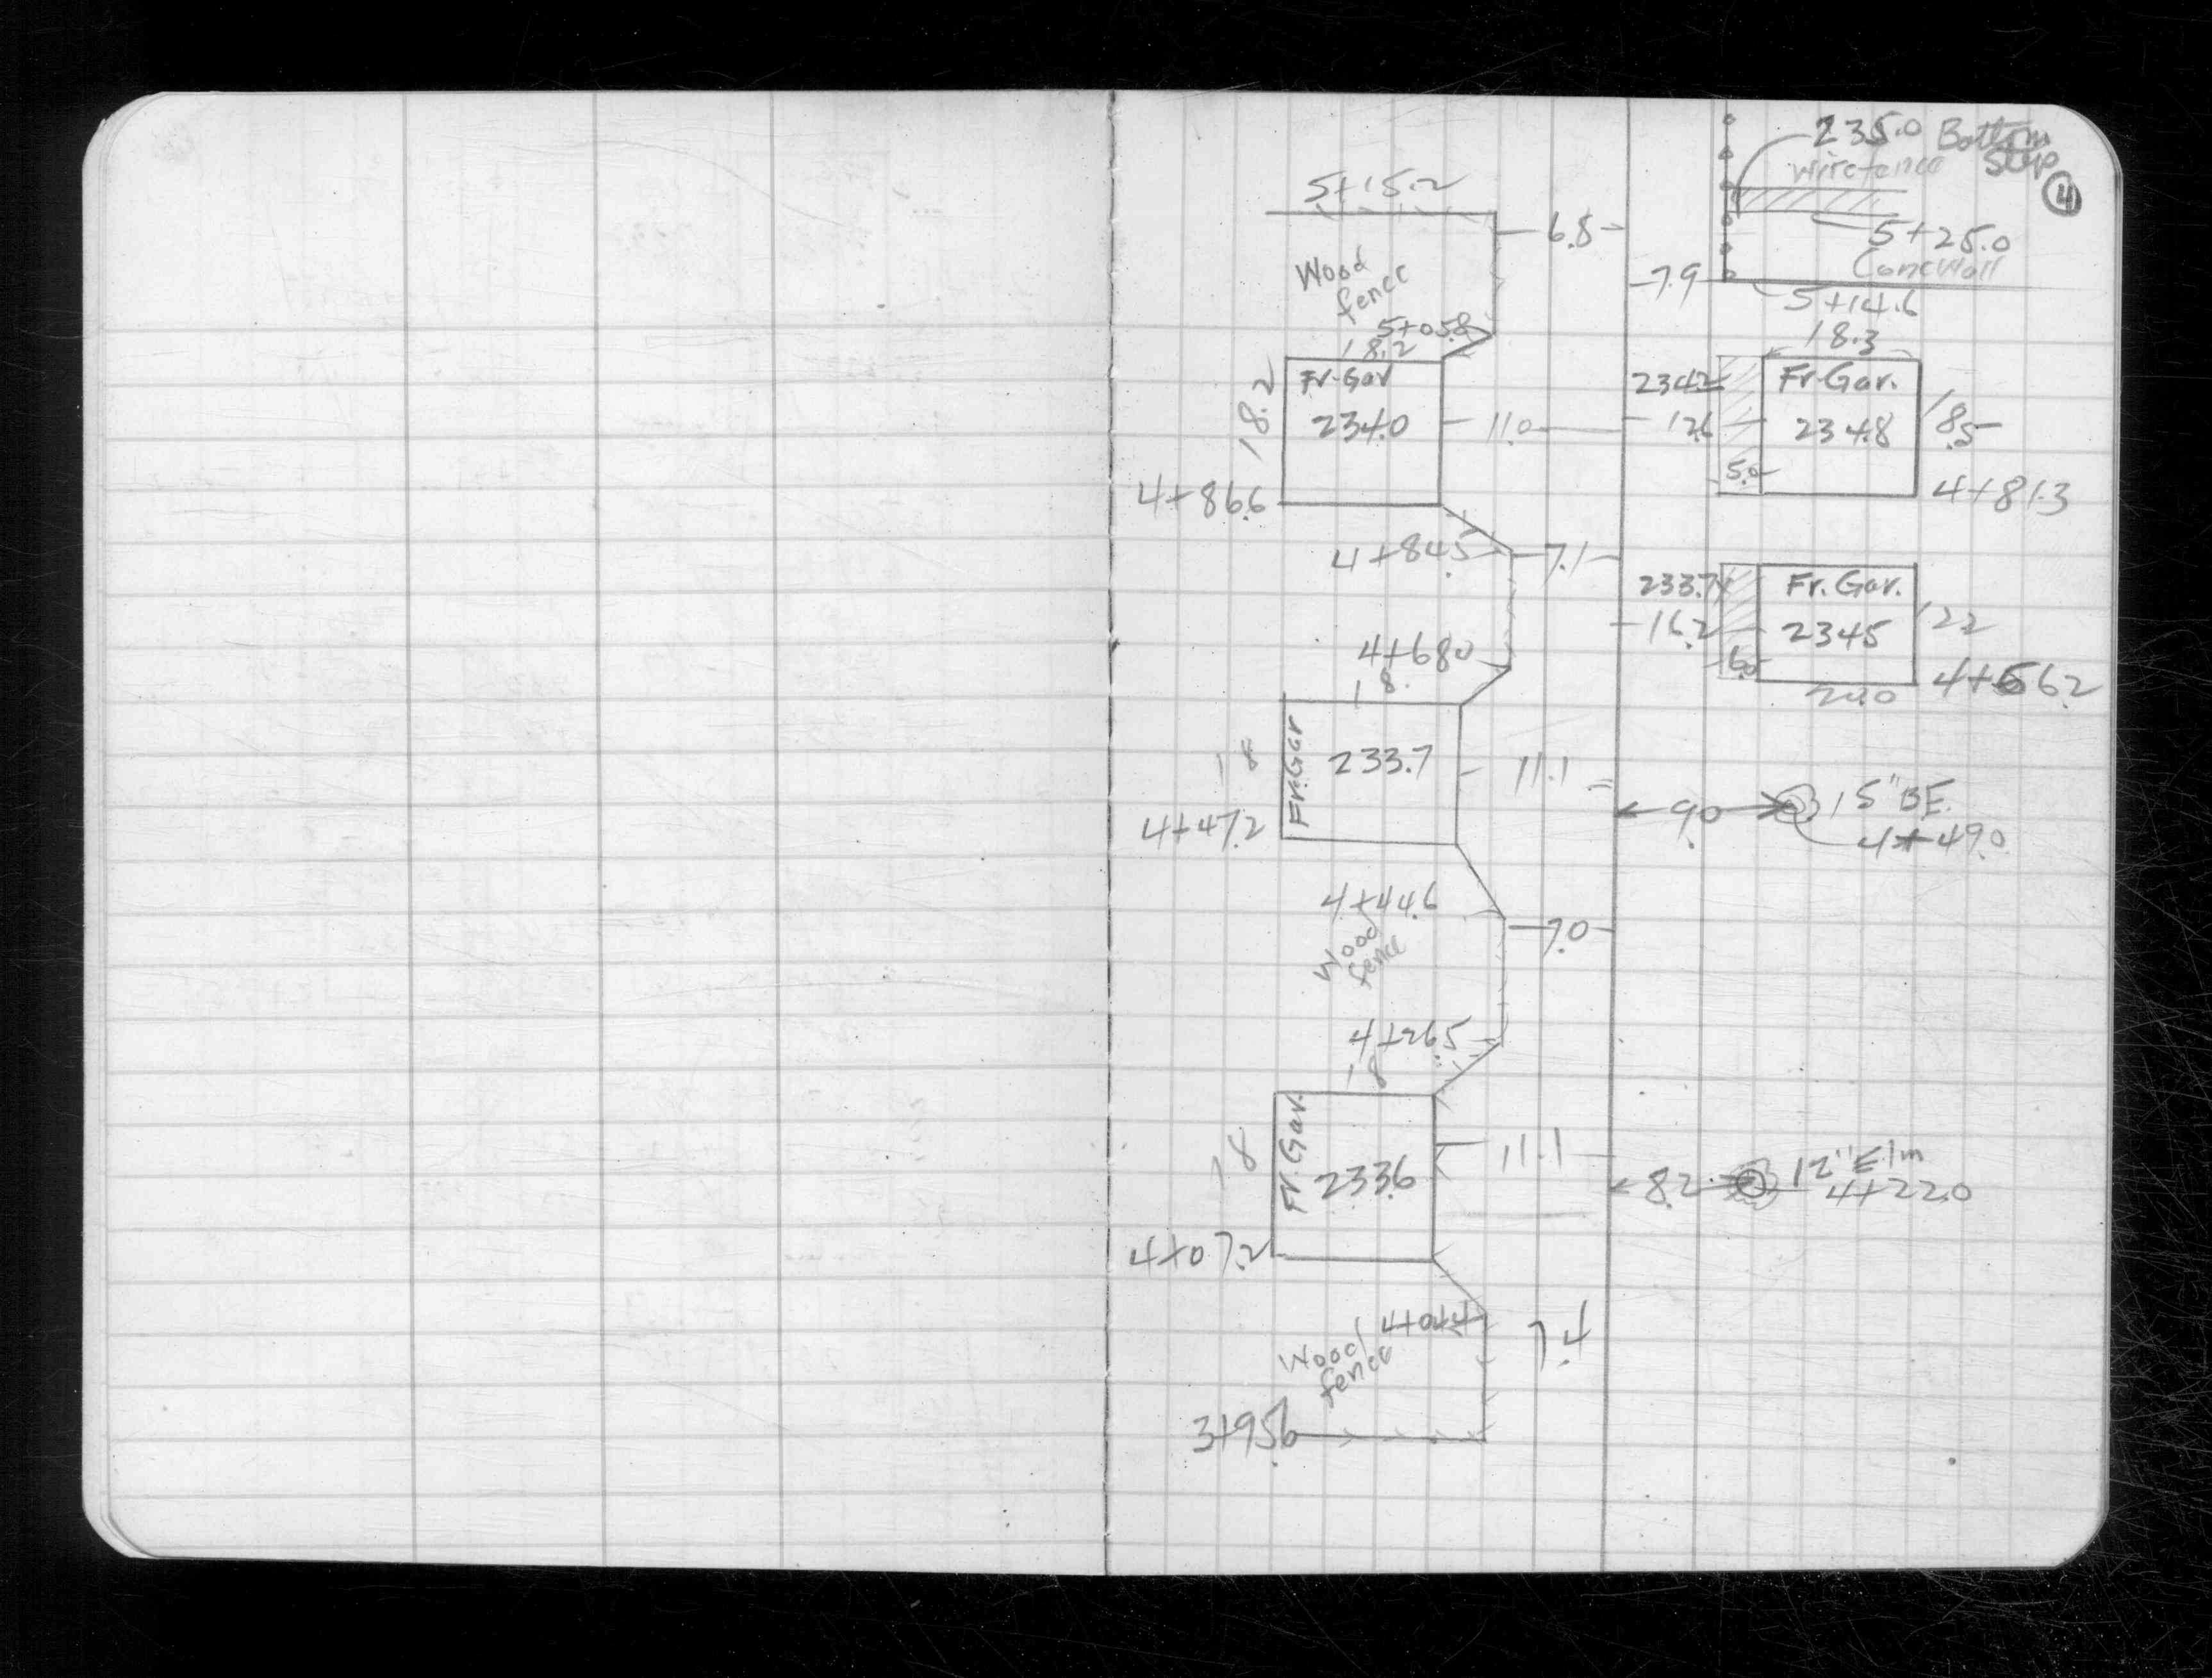 235.0 Bottom Step
Wirefence
④
5+15.2
6.8
5+25.0
Conc Wall
Wood fence
7.9
5+14.6
5+05.8
18.2
18.3
Fr. Gar
234.2
Fr. Gar.
18.2
234.0
11.0
12.6
234.8
18.5
5.0
4+86.6
4+81.3
4+84.5
7.1
233.7
Fr. Gar.
16.2
234.5
22
4+68.0
6.0
4+56.2
18.
20.0
Fr. Gar
18
233.7
11.1
15" B.E.
4+47.2
9.0
4+49.0
4+44.6
Wood fence
7.0
4+26.5
18
Fr. Gar.
18
233.6
11.1
8.2
12" Elm
4+22.0
4+07.2
4+04.4
7.4
Wood fence
3+95.6